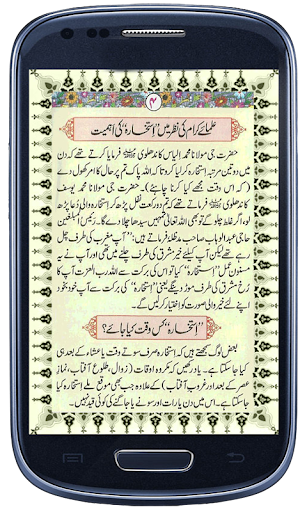 ۴
علمائے کرام کی نظر میں "استخارہ" کی اہمیت
حضرت جی مولانا محمد الیاس کاندھلوی ﷫ فرمایا کرتے تھے کہ دن
میں دو تین مرتبہ استخارہ کر لیا کرو تا کہ اللہ پاک تم پر حال کا امر کھول دے
(کہ اس وقت مجھے کیا کرنا چاہئے)۔ حضرت جی مولانا محمد یوسف
کاندھلوی ﷫ فرماتے تھے کہ تم دو رکعت نفل پڑھ کر استخارہ والی دُعا پڑھ
لو، اگر غلط چلو گے تو بھی اللہ تعالیٰ تمہیں سیدھا چلا دے گا۔ رئیس المبلغین
حاجی عبدالوہاب صاحب مدظلہ فرماتے ہیں: "آپ مغرب کی طرف چل
رہے ہیں لیکن آپ کیلئے خیر مشرق کی طرف چلنے میں تھی اور آپ نے یہ
مسنون عمل "استخارہ" کیا تو اس کی برکت سے اللہ رب العزت آپ کا
رُخ مشرق کی طرف موڑ دینگے یعنی "استخارہ" کی برکت سے آپ خود بخود
اپنے لئے خیر والی صورت کو اختیار کر لیں گے۔
"استخارہ" کس وقت کیا جائے؟
بعض لوگ سمجھتے ہیں کہ استخارہ صرف سوتے وقت یا عشاء کے بعد ہی
کیا جا سکتا ہے۔ یاد رکھیں کہ مکروہ اوقات (زوال، طلوع آفتاب، نمازِ
عصر کے بعد اور غروب آفتاب) کے علاوہ جب بھی موقع ملے استخارہ کیا
جا سکتا ہے۔ اس میں دن یا رات اور سونے یا جاگنے کی کوئی قید نہیں۔